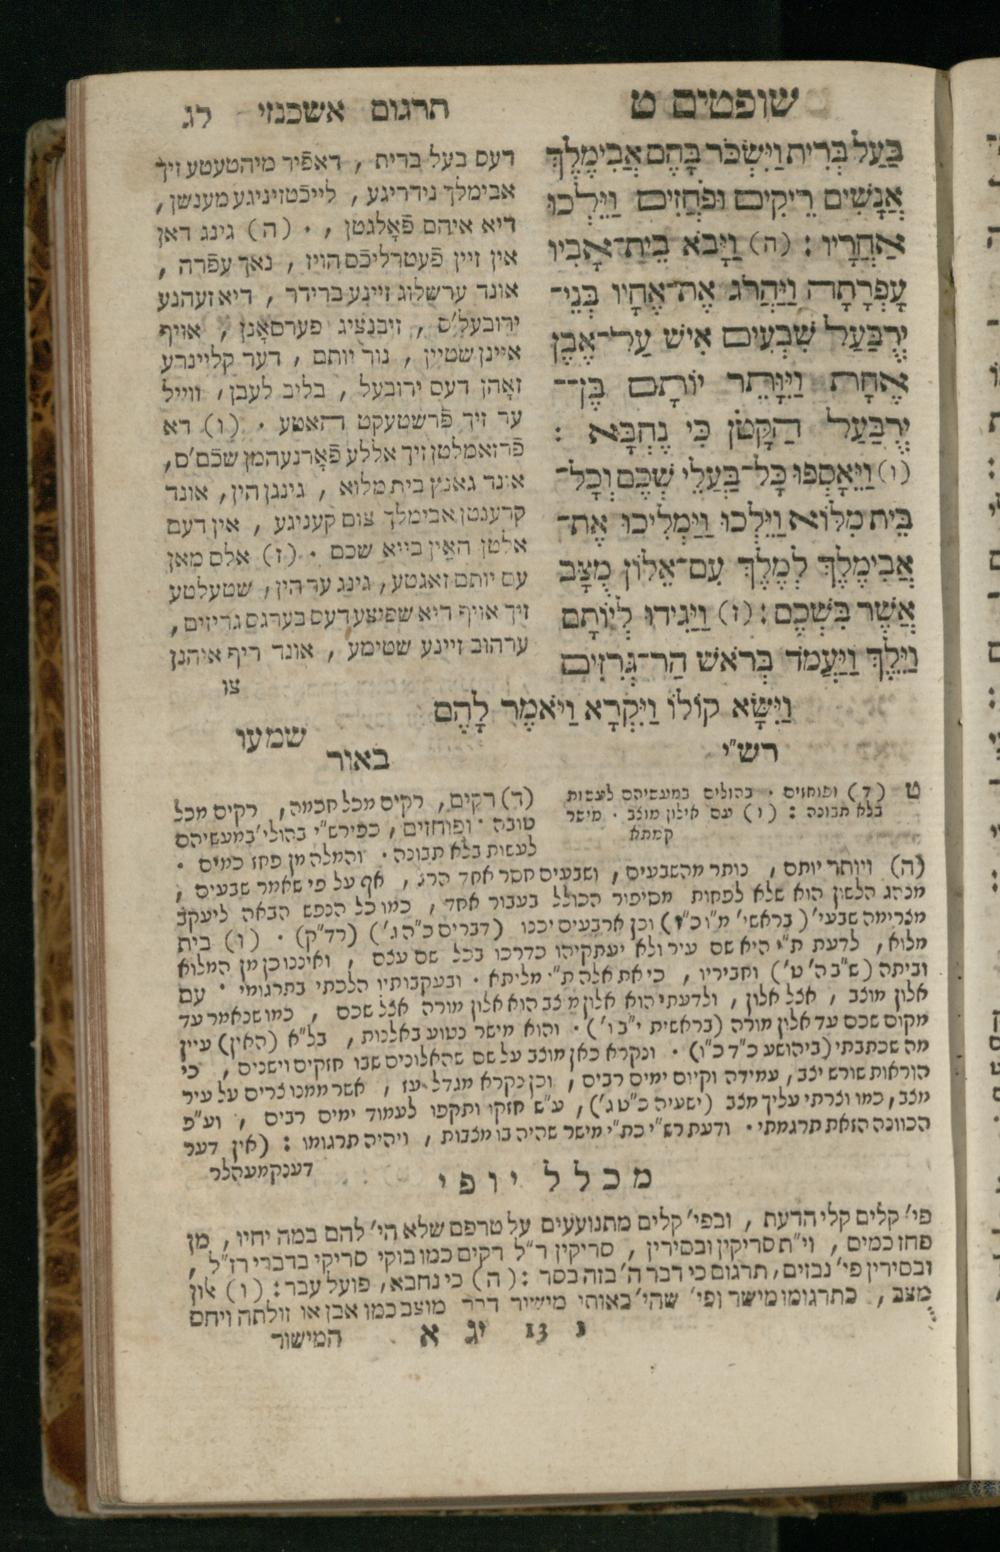 שופטים ט
תרגום אשכנזי
לג
בַּעַל בְּרִית וַיִּשְׂכֹּר בָּהֶם אֲבִימֶלֶךְ
אֲנָשִׁים רֵיקִים וּפֹחֲזִים וַיֵּלְכוּ
אַחֲרָיו : (ה) וַיָּבֹא בֵית־אָבִיו
עָפְרָתָה וַיַּהֲרֹג אֶת־אֶחָיו בְּנֵי־
יְרֻבַּעַל שִׁבְעִים אִישׁ עַל־אֶבֶן
אֶחָת וַיִּוָּתֵר יוֹתָם בֶּן־
יְרֻבַּעַל הַקָּטֹן כִּי נֶחְבָּא :
(ו) וַיֵּאָסְפוּ כָּל־בַּעֲלֵי שְׁכֶם וְכָל־
בֵּית מִלּוֹא וַיֵּלְכוּ וַיַּמְלִיכוּ אֶת־
אֲבִימֶלֶךְ לְמֶלֶךְ עִם־אֵלוֹן מֻצָּב
אֲשֶׁר בִּשְׁכֶם : (ז) וַיַּגִּידוּ לְיוֹתָם
וַיֵּלֶךְ וַיַּעֲמֹד בְּרֹאשׁ הַר־גְּרִזִים
וַיִּשָּׂא קוֹלוֹ וַיִּקְרָא וַיֹּאמֶר לָהֶם
שמעו
דעס בעל ברית , דאפֿיר מיהטעטע זיך
אבימלך נידריגע , לייכֿטזיניגע מענשן ,
דיא איהם פֿאָלגטן , . (ה) גינג דאן
אין זיין פֿעטרליכֿס הויז , נאך עפֿרה ,
אונד ערשלוג זיינע ברידר , דיא זעהנע
ירובעל'ס , זיבנציג פערסאָנן , אויף
איינן שטיין , נור יותם , דער קליינרע
זאָהן דעס ירובעל , בליב לעבן , ווייל
ער זיך פֿרשטעקט האטע . (ו) דא
פֿרזאמלטן זיך אללע פֿאָרנעהמן שכֿם'ס ,
אונד גאנץ בית מלוא , גינגן הין , אונד
קרענטן אבימלך צום קעניגע , אין דעם
אלטן האַין בייא שכם . (ז) אלס מאן
עס יותם זאגטע , גינג ער הין , שטעלטע
זיך אויף דיא שפיצע דעס בערגס גריזים ,
ערהוב זיינע שטימע , אונד ריף איהנן
צו
רש"י
ט (ד) ופוחזים . בהולים במעשיהם לעשות
בלא תבונה : (ו) עם אילון מוצב . מישר
קמתא
באור
(ד) רקים , רקים מכל חכמה , רקים מכל
טובה . ופוחזים , כפירש"י בהולי' במעשיהם
לעשות בלא תבונה . והמלה מן פחז כמים .
(ה) ויותר יותם , נותר מהשבעים , ושבעים חסר אחד הרג , אף על פי שאמר שבעים ,
מנהג הלשון הוא שלא לפחות מסיפור הכולל בעבור אחד , כמו כל הנפש הבאה ליעקב
מצרימה שבעי' (בראשי' מ"ו כ"ז) וכן ארבעים יכנו (דברים כ"ה ג') (רד"ק) . (ו) בית
מלוא , לדעת ת"י היא שם עיר ולא יעתקיהו כדרכו בכל שם עצם , ואיננו כן מן המלוא
וביתה (ש"ב ה' ט') וחביריו , כי את אלה ת"י מליתא . ובעקבותיו הלכתי בתרגומי . עם
אלון מוצב , אצל אלון , ולדעתי הוא אלון מצב הוא אלון מורה אצל שכם , כמו שנאמר עד
מקום שכם עד אלון מורה (בראשית י"ב ו') . והוא מישר נטוע באלנות , בל"א (האין) עיין
מה שכתבתי (ביהושע כ"ד כ"ו) . ונקרא כאן מוצב על שם שהאלונים שבו חזקים וישנים , כי
הוראות שורש יצב , עמידה וקיום ימים רבים , וכן נקרא מגדל עז , אשר ממנו צרים על עיר
מצב , כמו וצרתי עליך מצב (ישעיה כ"ט ג') , ע"ש חזקו ותקפו לעמוד ימים רבים , וע"פ
הכוונה הזאת תרגמתי . ודעת רש"י כת"י מישר שהיה בו מצבות , ויהיה תרגומו : (אין דער
דענקמעהלר
מכלל יופי
פי' קלים קלי הדעת , ובפי' קלים מתנועעים על טרפם שלא הי' להם במה יחיו , מן
פחז כמים , וי"ת סריקין ובסירין , סריקין ר"ל רקים כמו בוקי סריקי בדברי רז"ל ,
ובסירין פי' נבזים , תרגום כי דבר ה' בזה בסר : (ה) כי נחבא , פועל עבר : (ו) אלון
מצב , כתרגומו מישר ופי' שהי' באותו מישור דבר מוצב כמו אבן או זולתה ויחס
ג 13 יג א
המישור